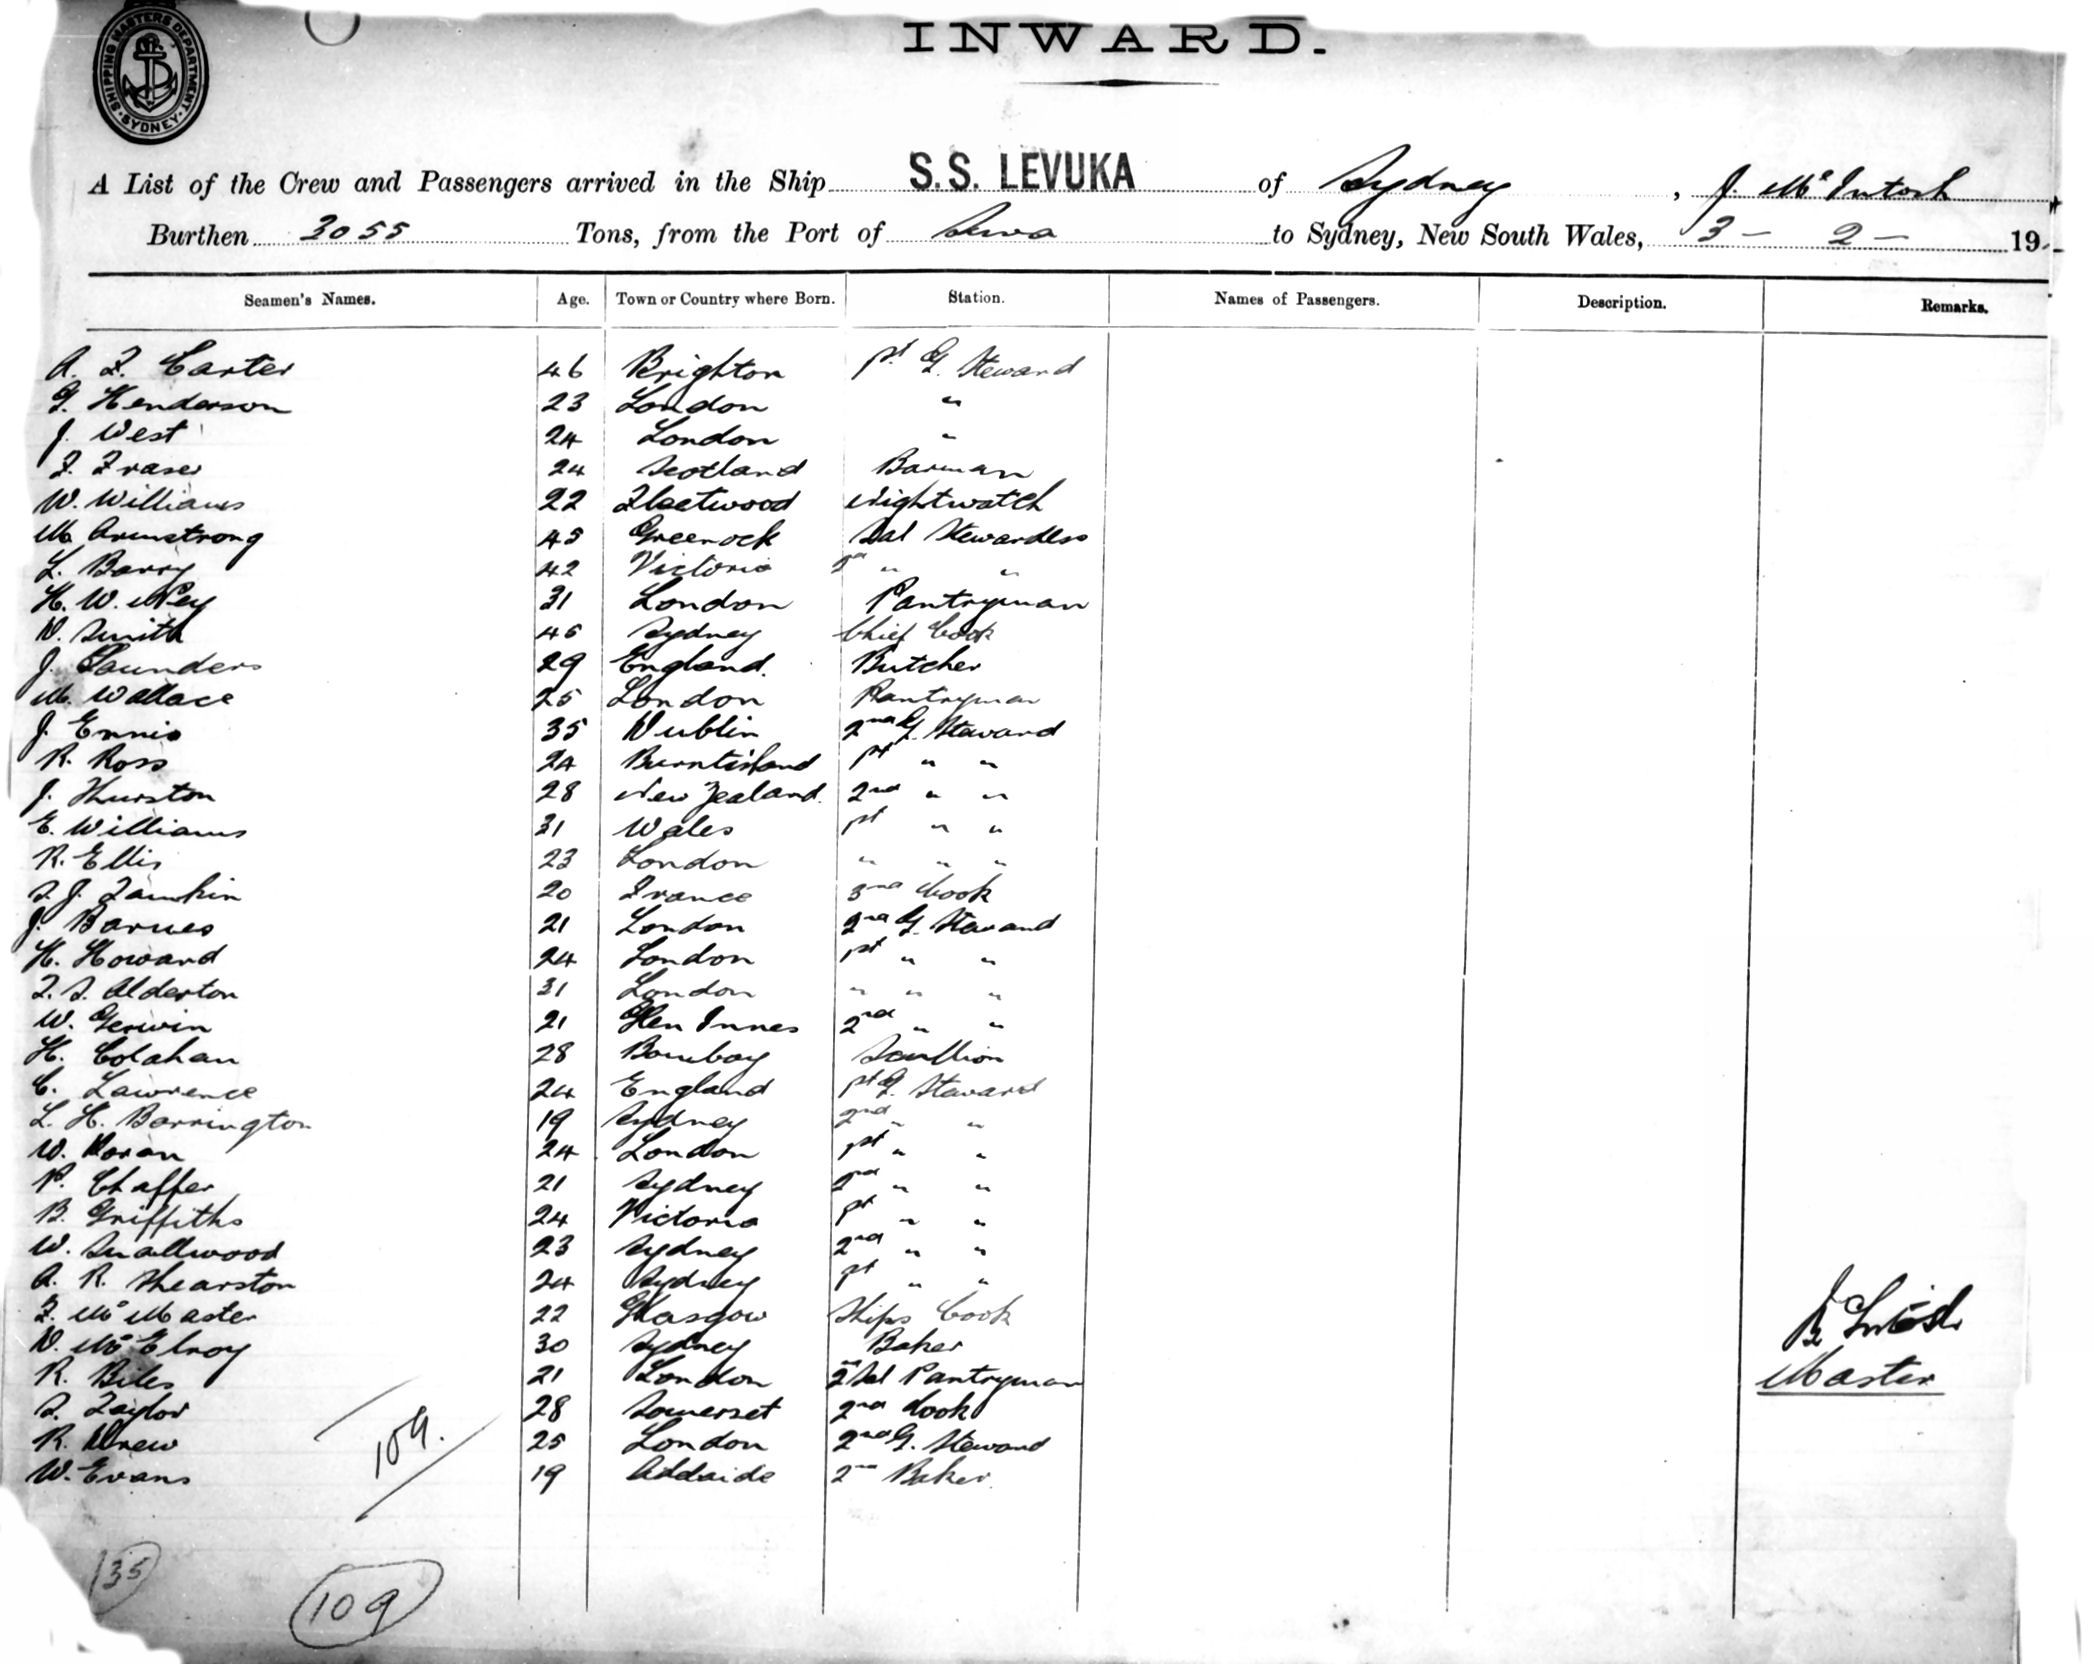 SHIPPING MASTERS DEPARTMENT
SYDNEY
INWARD.
A List of the Crew and Passengers arrived in the Ship S.S. LEVUKA of Sydney, J. McIntosh
Burthen 3055 Tons, from the Port of Suva to Sydney, New South Wales, 3 - 2 - 19
Seamen's Names. Age. Town or Country where Born. Station. Names of Passengers. Description. Remarks.
A. F. Carter 46 Brighton 1st G. Steward
G. Henderson 23 London "
J. West 24 London "
F. Fraser 24 Scotland Barman
W. Williams 22 Fleetwood Nightwatch
M. Armstrong 45 Greenock Sal Stewardess
L. Barry 42 Victoria 2nd " "
H. W. Ney 31 London Pantryman
D. Smith 46 Sydney Chief Cook
J. Saunders 29 England. Butcher
M. Wallace 25 London Pantryman
J. Ennis 35 Dublin 2nd G. Steward
R. Ross 24 Burntisland 1st " "
J. Thurston 28 New Zealand. 2nd " "
E. Williams 31 Wales 1st " "
R. Ellis 23 London " " "
S. J. 20 France 3rd Cook
J. Barnes 21 London 2nd G. Steward
H. Howard 24 London 1st " "
F. S. Alderton 31 London " " "
W. Gerwin 21 Glen Innes 2nd " "
H. Colahan 28 Bombay Scullion
C. Lawrence 24 England 1st G. Steward
L. H. Barrington 19 Sydney 2nd " "
W. Doran 24 London 1st " "
P. Chaffer 21 Sydney 2nd " "
B. Griffiths 24 Victoria 1st " "
W. Smallwood 23 Sydney 2nd " "
A. R. Shearston 24 Sydney 1st " "
F. McMaster 22 Glasgow Ships Cook
D. McElroy 30 Sydney Baker
R. Biles 21 London 2nd Sal Pantryman
S. Taylor 28 Somerset 2nd Cook
R. Drew 25 London 2nd G. Steward
W. Evans 19 Adelaide 2nd Baker.
Master
109.
35
109